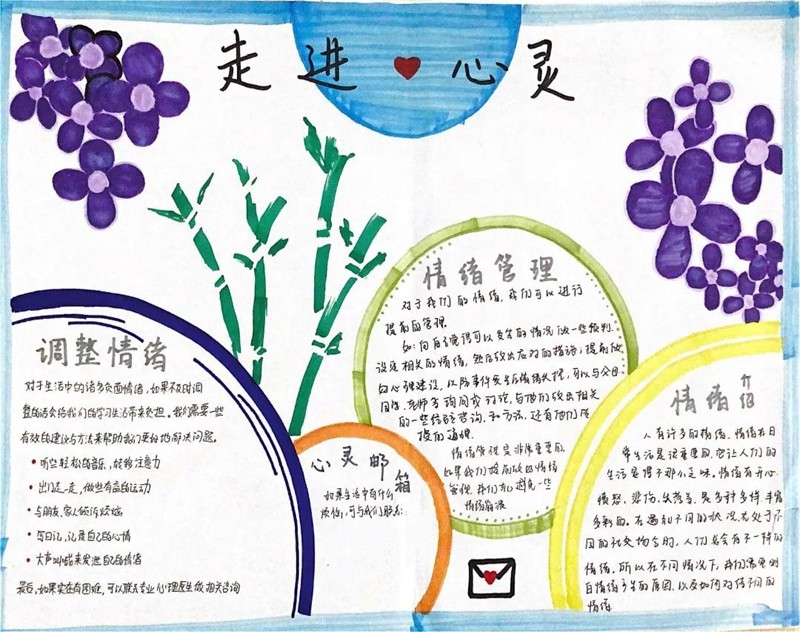 走进心灵
调整情绪
对于生活中的诸多负面情绪,如果不及时调
整的话会给我们的学习生活带来负担。我们需要一些
有效的建议与方法来帮助我们更好地解决问题。
听些轻松的音乐,转移注意力
出门走一走,做些有益的运动
与朋友、家人倾诉烦恼
写日记,记录自己的心情
大声叫喊来发泄自己的情绪
最后,如果实在有困难,可以联系专业心理医生做相关咨询
心灵邮箱
如果生活中有什么
烦恼,可与我们联系:
情绪管理
对于我们的情绪,我们可以进行
提前的管理
如:向自己觉得可以发生的情况做一些预判,
设定相关的情绪,然后做出应对的措施;提前做
好心理建设,以防事件发生后情绪失控,可以与父母
同学、老师多询问或讨论,与他们做出相关
的一些
情绪管理是非常重要的,
如果我们提前做好情绪
管理,我们可以避免一些
情绪崩溃
情绪介绍
人有许多的情绪,情绪在日
常生活是很重要的,它让人们的
生活变得不那么乏味。情绪有开心、
愤怒、悲伤、失落等,是多种多样、丰富
多彩的。在遇到不同的状况,或处于不
同的社交场合时,人们都会有不一样的
情绪,所以在不同情况下,我们需要明
白情绪产生的原因,以及如何对待不同的
情绪